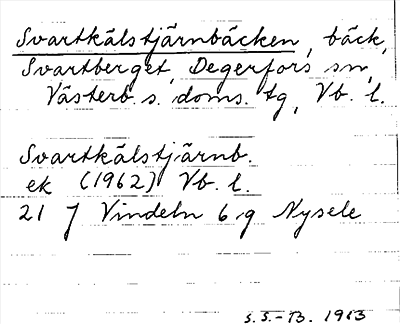 Svartkålstjärnbäcken, bäck,
Svartberget, Degerfors sn,
Västerb. s. doms. tg, Vb. l.
Svartkålstjärnb.
ek (1962) Vb. l.
21 J Vindeln 6 g Nysele
S.S.-B. 1913